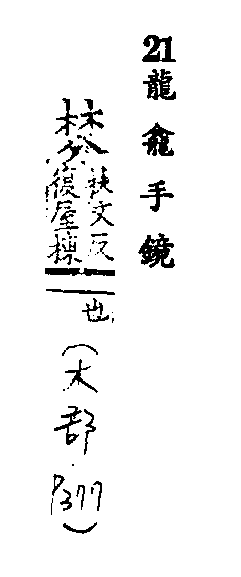 21 龍龕手鏡
棼 扶文反
復屋棟
也(木部
P377)